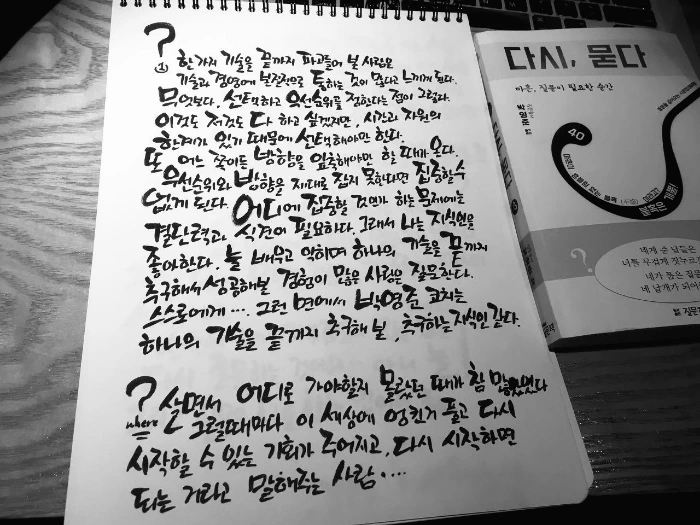 ?
한 가지 기술을 끝까지 파고들어 본 사람은
기술과 경영에 본질적으로 통하는 것이 많다고 느끼게 된다.
무엇보다, 선택하고 우선순위를 정한다는 점이 그렇다.
이것도 저것도 다 하고 싶겠지만, 시간과 자원의
한계가 있기 때문에 선택해야만 한다.
또 어느 쪽이든 방향을 압축해야만 할 때가 온다.
우선순위와 방향을 제대로 잡지 못한다면 집중할 수
없게 된다. 어디에 집중할 것인가 하는 문제에는
결단력과 식견이 필요하다. 그래서 나는 지식인을
좋아한다. 늘 배우고 익히며 하나의 기술을 끝까지
추구해서 성공해본 경험이 많은 사람은 질문한다.
스스로에게 .... 그런 면에서 박영준 코치는
하나의 기술을 끝까지 추구해 본, 추구하는 지식인 같다.
? 살면서 어디로 가야할지 몰랐던 때가 참 많았었다
where 그럴때마다 이 세상에 엉킨거 풀고 다시
시작할 수 있는 기회가 주어지고, 다시 시작하면
되는 거라고 말해주는 사람....
다시, 묻다
마흔, 질문이 필요한 순간
박영준
40
?
네게 준 답들은
너를 무겁게 짓누르
네가 품은 질문
네 날개가 되어